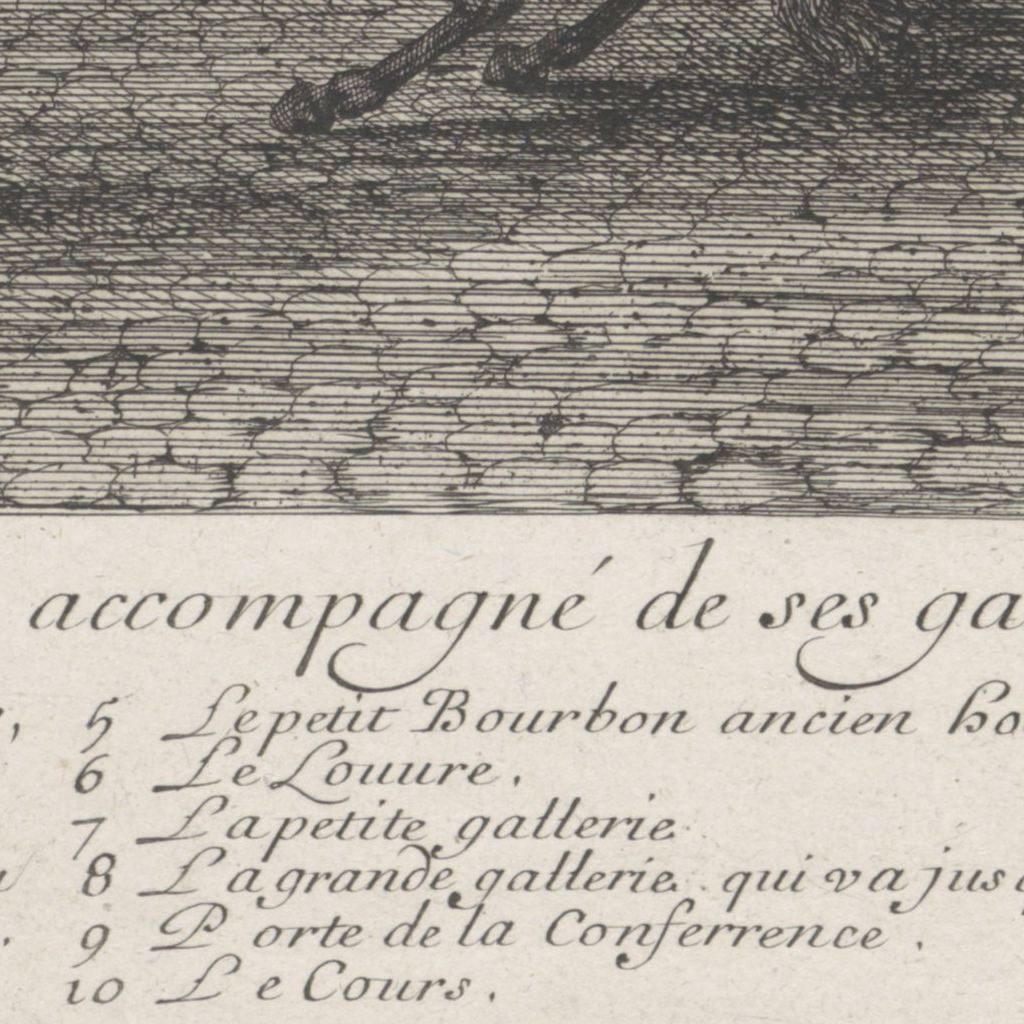 accompagné de ses ga
5 Le petit Bourbon ancien ho
6 Le Louure.
7 La petite gallerie
8 La grande gallerie. qui va jusq
9 Porte de la Conferrence.
10 Le Cours.